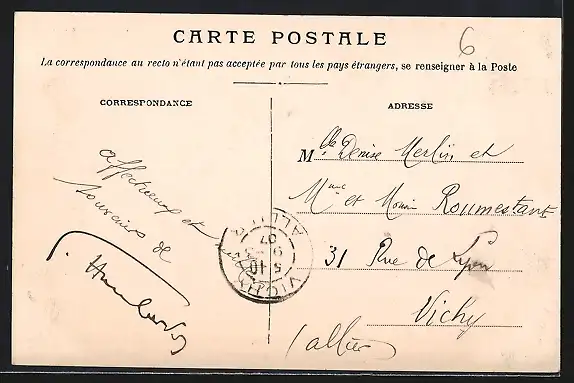 6
CARTE POSTALE
La correspondance au recto n'étant pas acceptée par tous les pays étrangers, se renseigner à la Poste
CORRESPONDANCE
affectueux et
souvenirs de
ADRESSE
Mlle Denise Merlin et
Mme et Roumestant
31 Rue de Lyon
Vichy
(allier)
VICHY
5-10
9
07
ALLIER